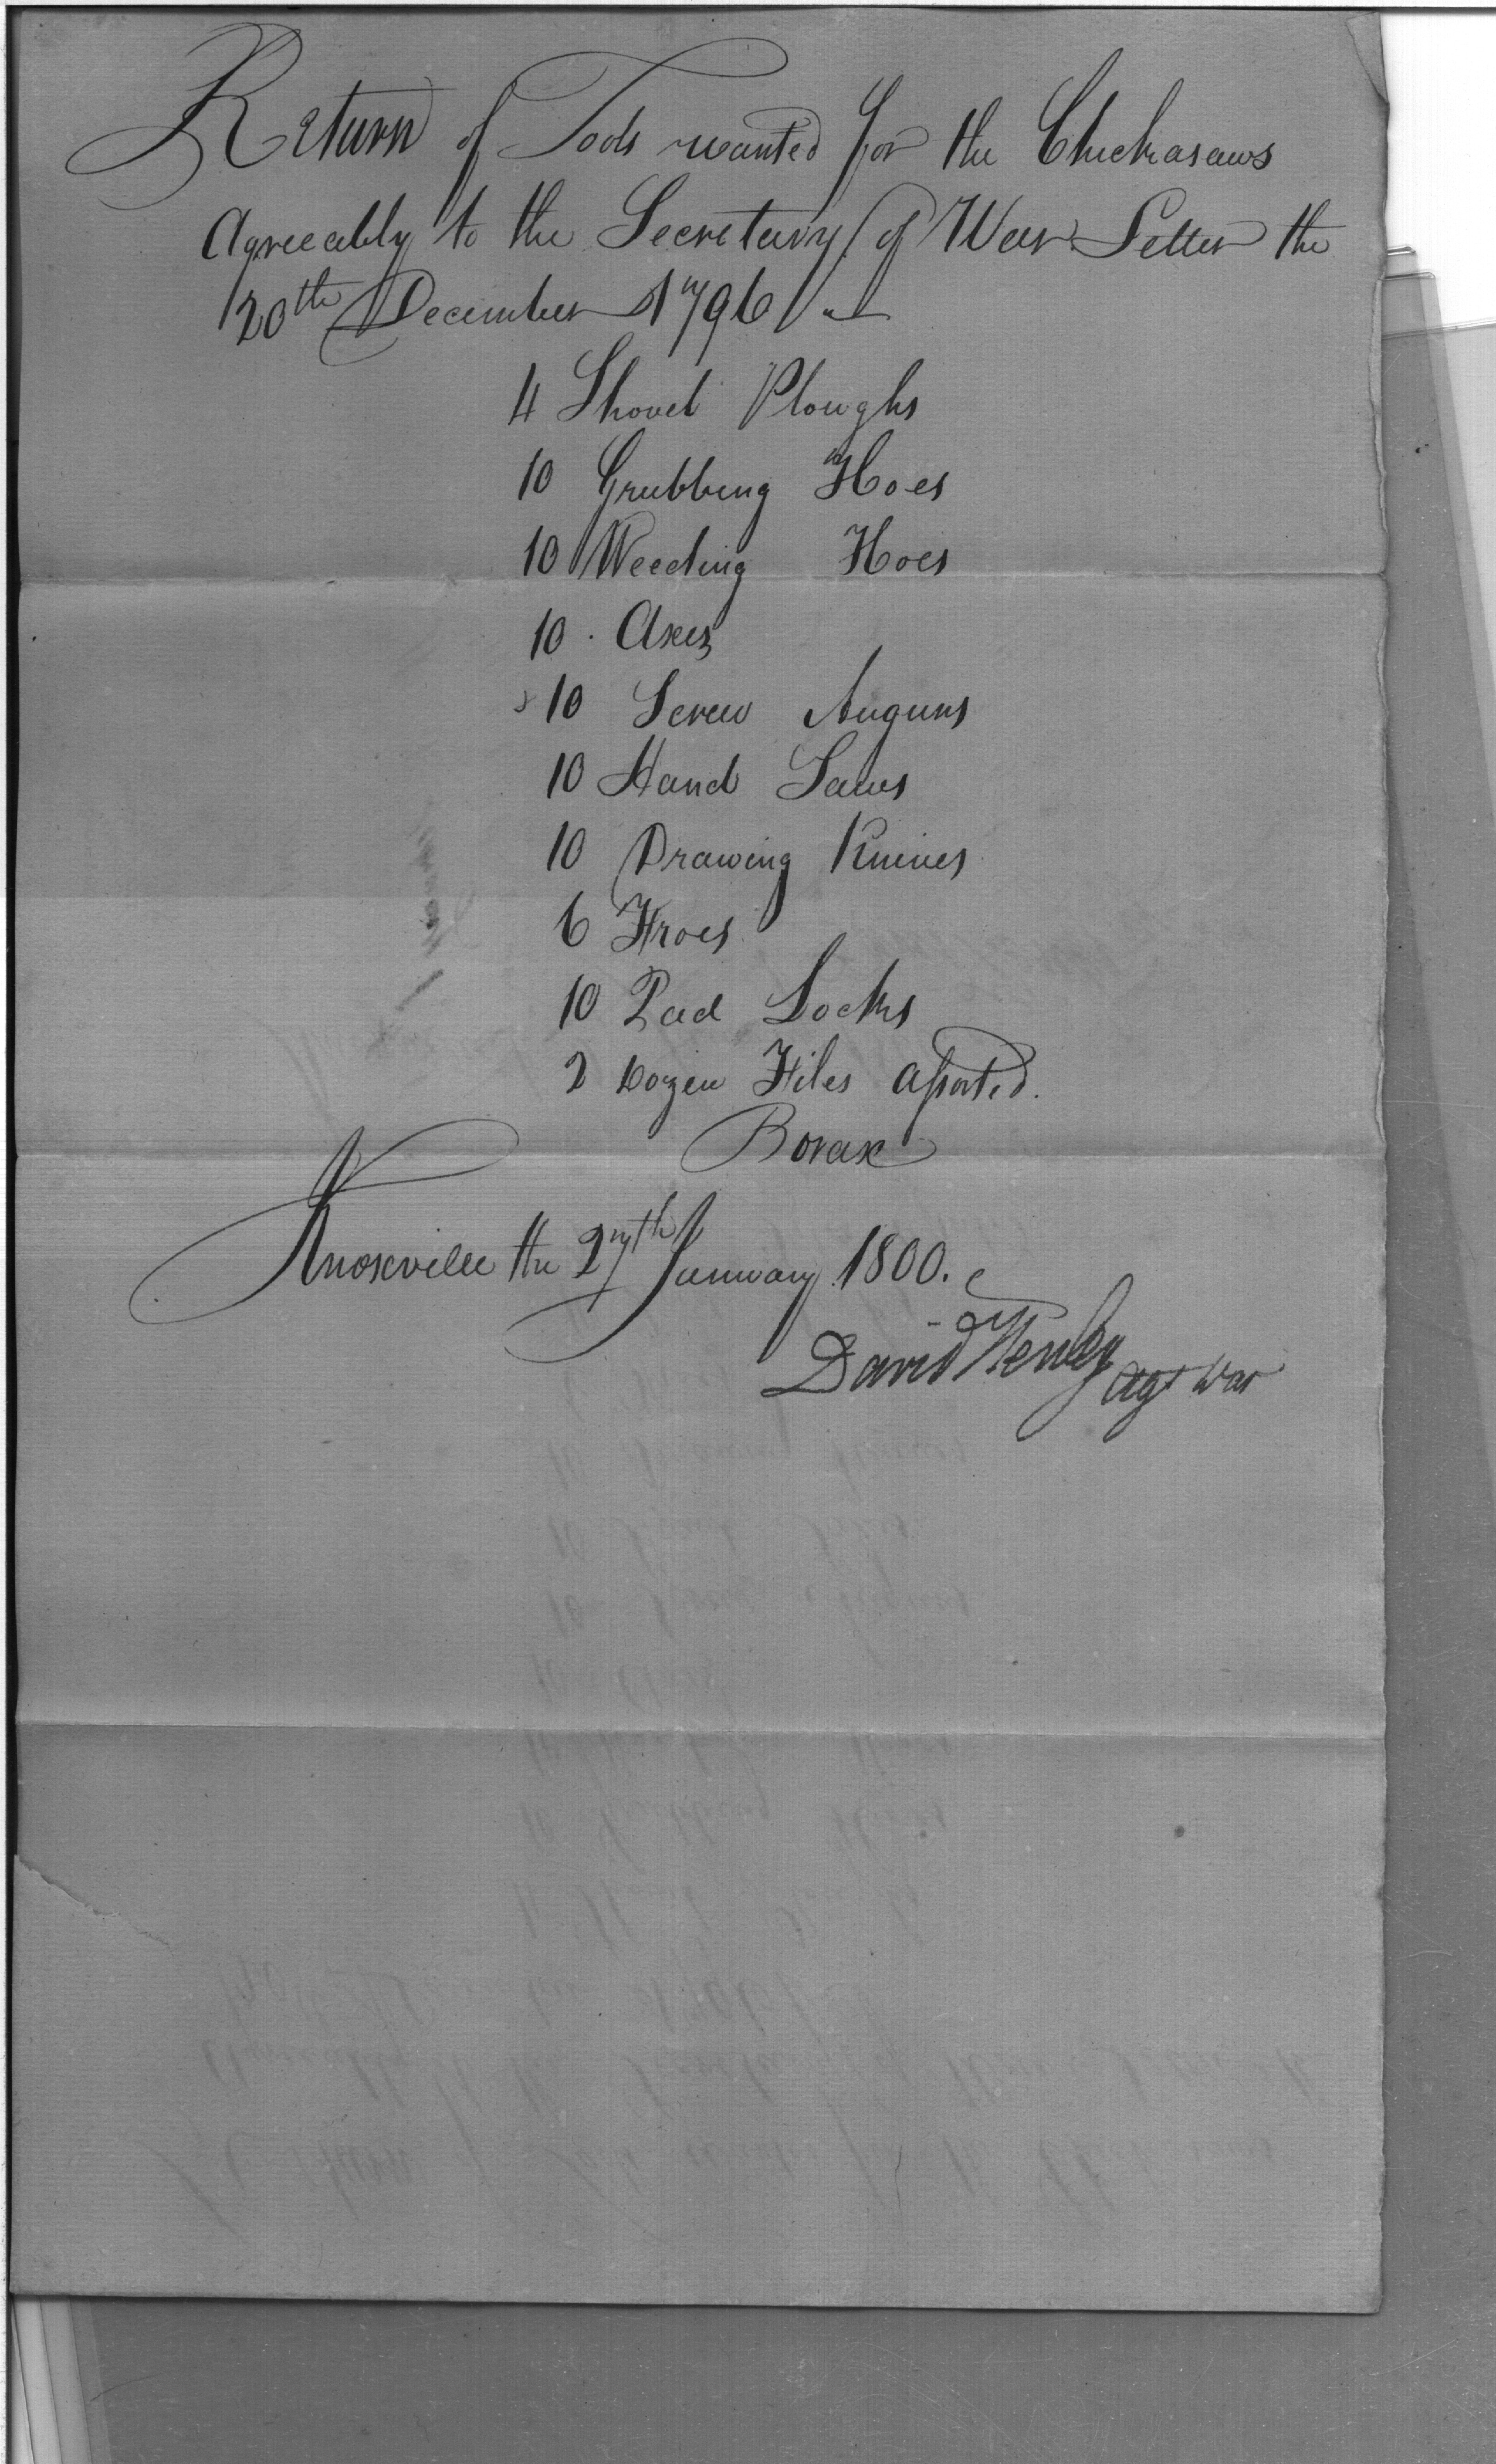 Return of Tools wanted for the Chickasaws
Agreeably to the Secretary of War Letter the
20th December 1796
4 Shovel Ploughs
10 Grubbing Hoes
10 Weeding Hoes
10 Axes
10 Screw Augurs
10 Hand Saws
10 Drawing Knives
6 Froes
10 Pad Locks
2 Dozen Files assorted.
Borax
Knoxville the 27th January 1800.
David Henley Agt War